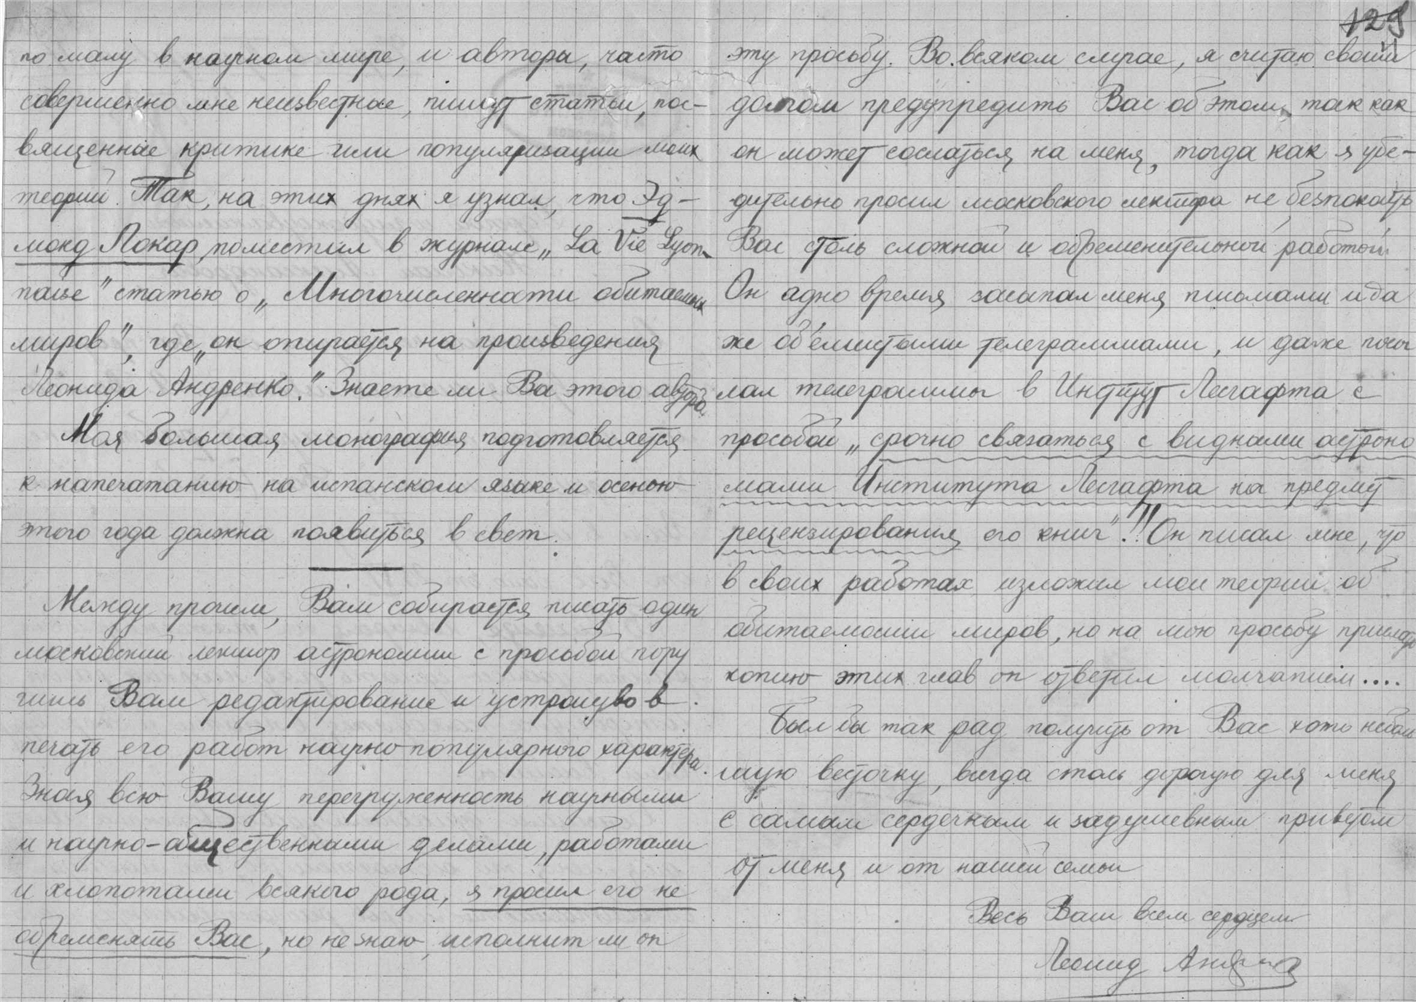 129
по малу в научном мире, и авторы, часто
совершенно мне неизвестные, пишут статьи, пос-
вященные критике или популяризации моих
теорий. Так, на этих днях я узнал, что Эд-
монд Локар, поместил в журнале „La Vie Lyon-
naise" статью о „Многочисленности обитаемых
миров", где „он опирается на произведения
Леонида Андренко". Знаете ли Вы этого автора.
Моя большая монография подготовляется
к напечатанию на испанском языке и осенью
этого года должна появиться в свет.
Между прочим, Вам собирается писать один
московский лектор астрономии с просьбой пору
чить Вам редактирование и устройство в
печать его работ научно популярного характера.
Зная всю Вашу перегруженность научными
и научно-общественными делами, работами
и хлопотами всякого рода, я просил его не
обременять Вас, но не знаю, исполнит ли он
эту просьбу. Во всяком случае, я считаю своим
долгом предупредить Вас об этом, так как
он может сослаться на меня, тогда как я убе-
дительно просил московского лектора не безпокоить
Вас столь сложной и обременительной работой.
Он одно время засыпал меня письмами и да
же об'емистыми телеграммами, и даже посы
лал телеграммы в Институт Лесгафта с
просьбой „срочно связаться с видными астроно
мами Института Лесгафта на предмет
рецензирования его книг"!!! Он писал мне, что
в своих работах изложил мои теории об
обитаемости миров, но на мою просьбу прислать
копию этих глав он ответил молчанием....
Был бы так рад получить от Вас хоть неболь
шую весточку, всегда столь дорогую для меня
С самым сердечным и задушевным приветом
от меня и от нашей семьи
Весь Ваш всем сердцем
Леонид Андренко